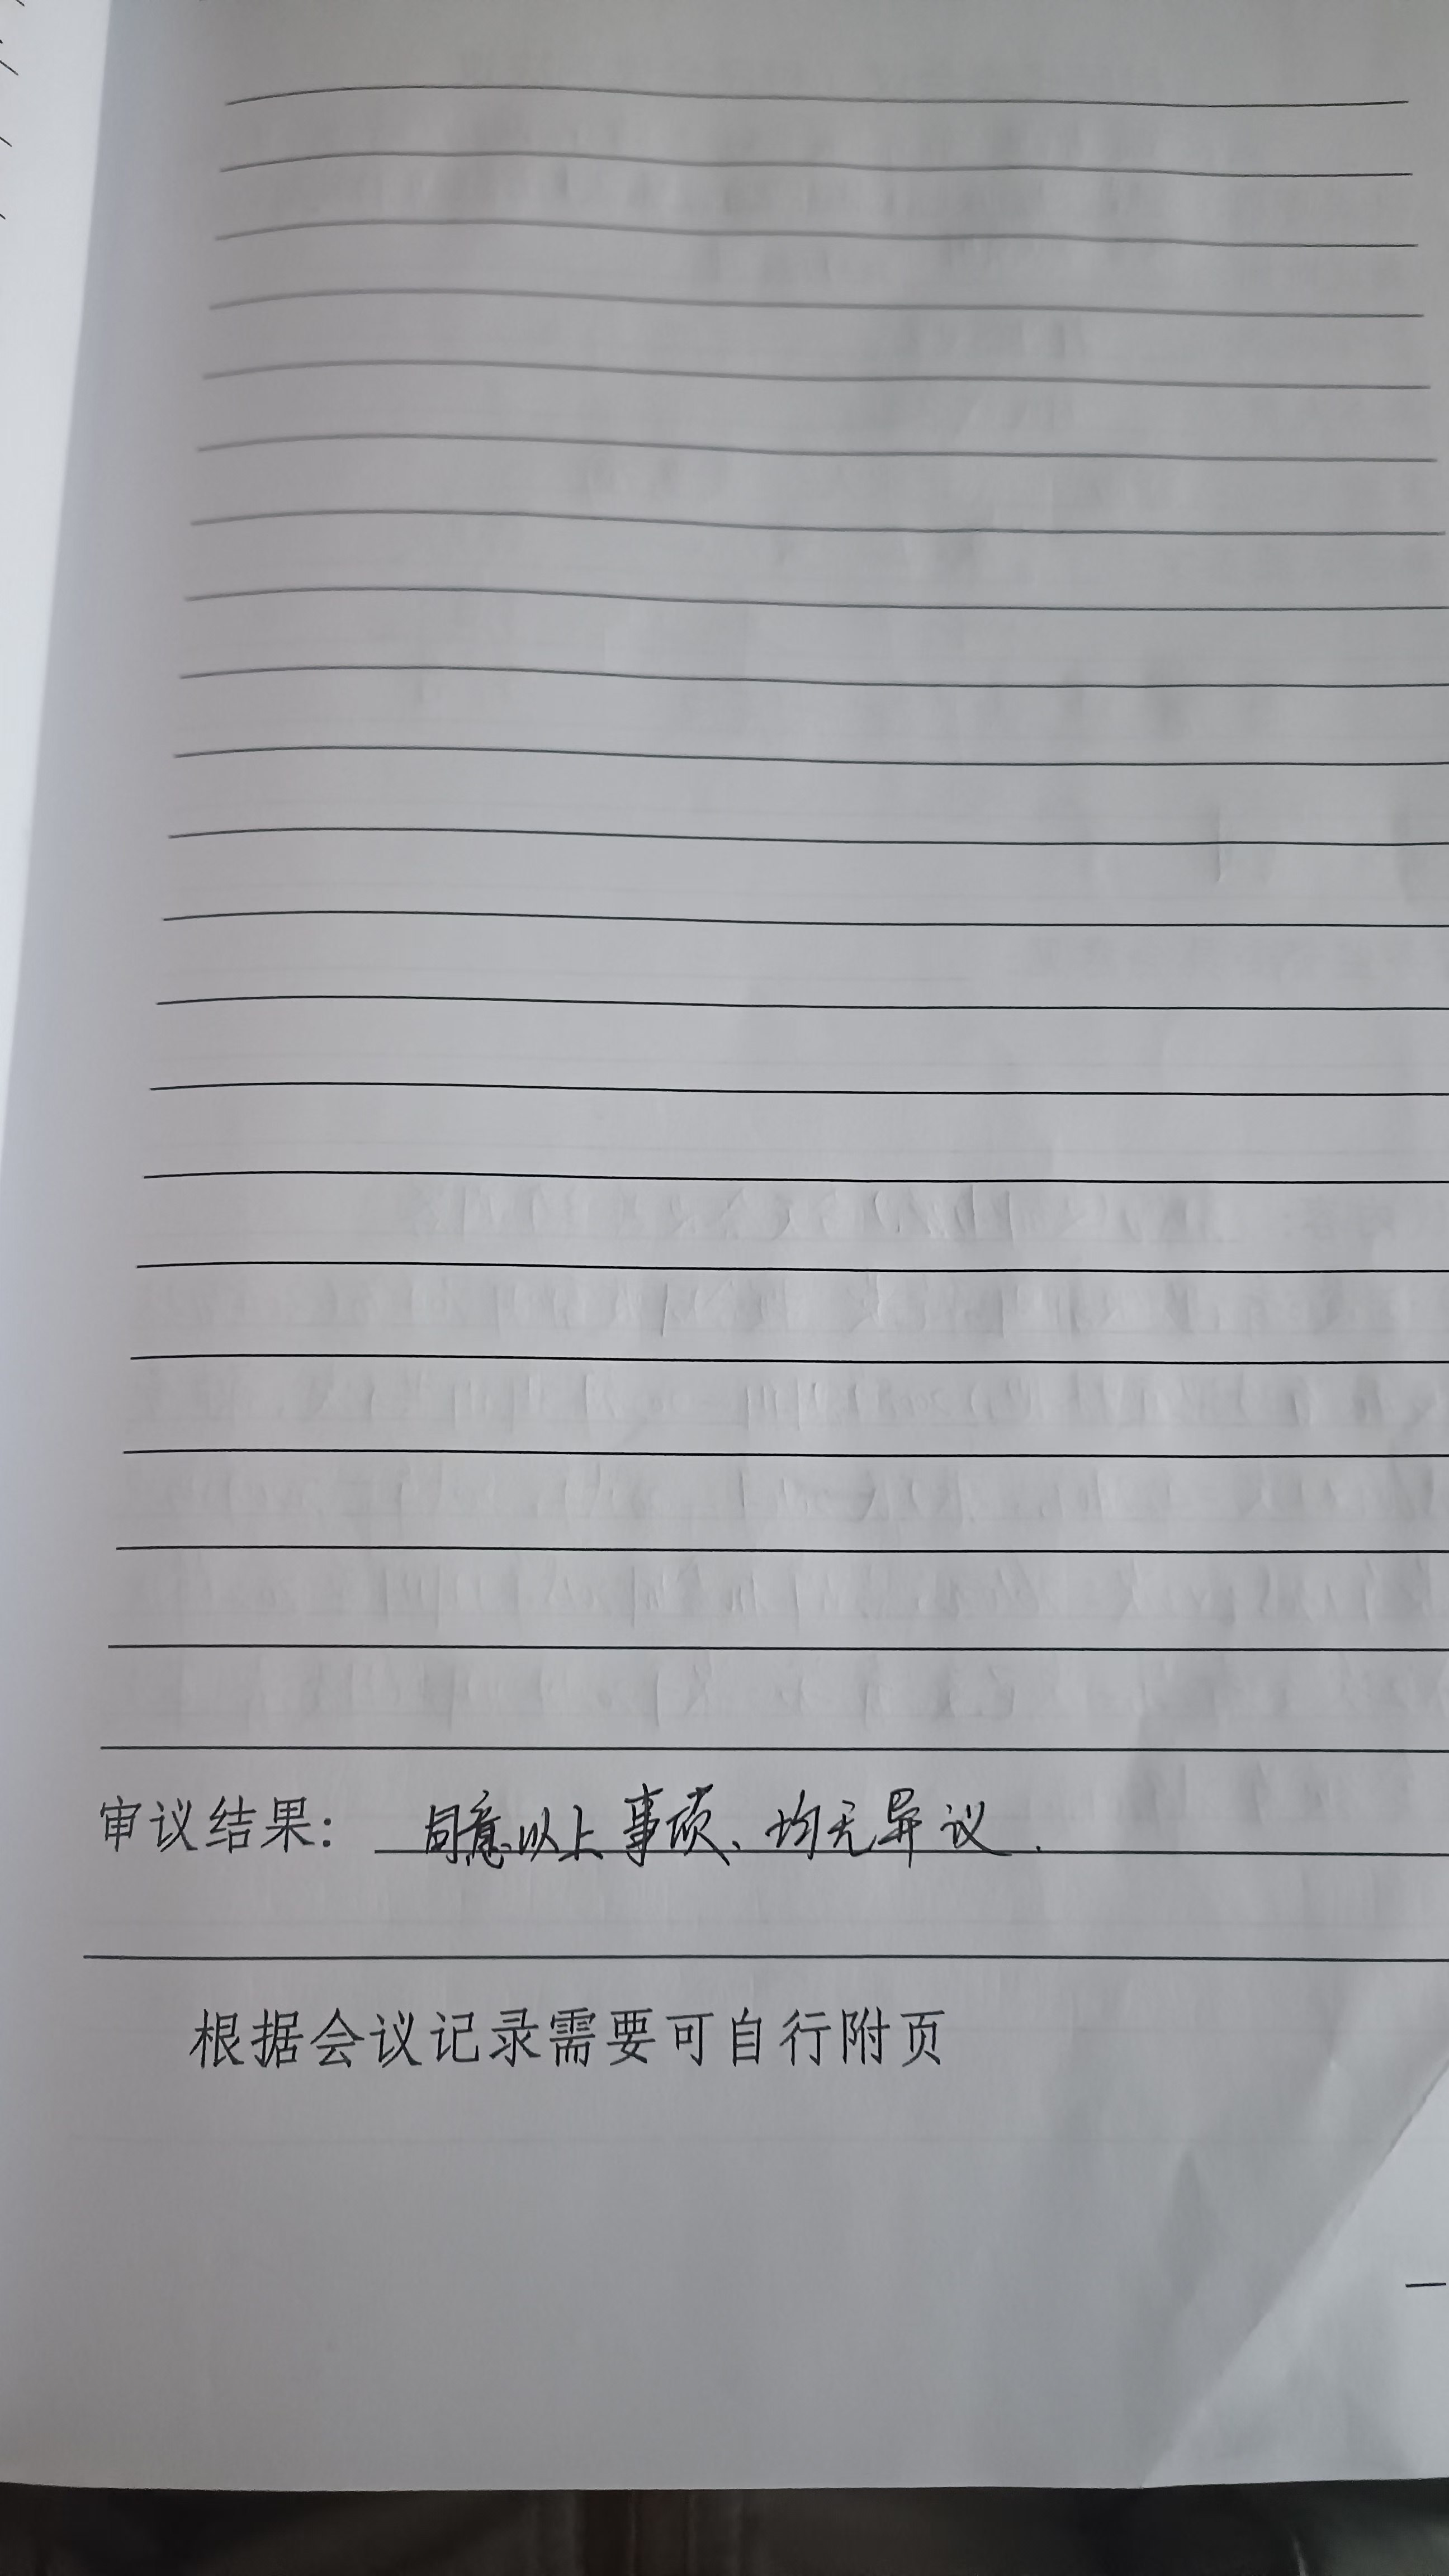 审议结果： 同意以上事项、均无异议.
根据会议记录需要可自行附页